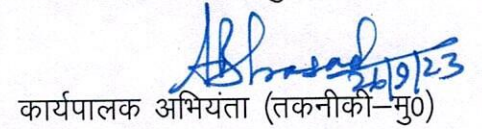 26/9/23
कार्यपालक अभियंता (तकनीकी–मु0)